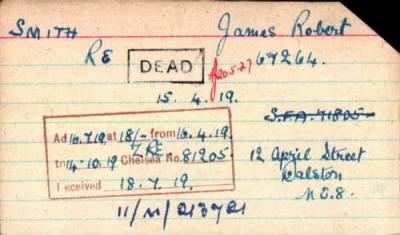 SMITH James Robert
RE DEAD 20.5.27 67264.
15. 4. 19.
S.F.A. 71805
Ad 16.7.19 at 18/- from 16.4.19.
RE
to 14.10.19 Chelsea No. 81205
I received 18.7.19.
12 April Street
Dalston
N.E.8.
11/M/